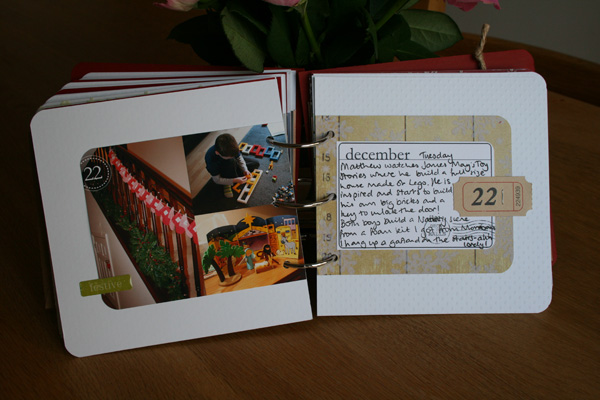 22
festive
15
18
8
15
december Tuesday
22
Matthew watches James May's Toy
Stories where he build a full size
house made of Lego. He is
inspired and starts to build
his own big bricks and a
key to unlock the door!
Both boys build a Nativity scene
from a foam kit I got from
I hang up a garland on the stairs -
lovely!